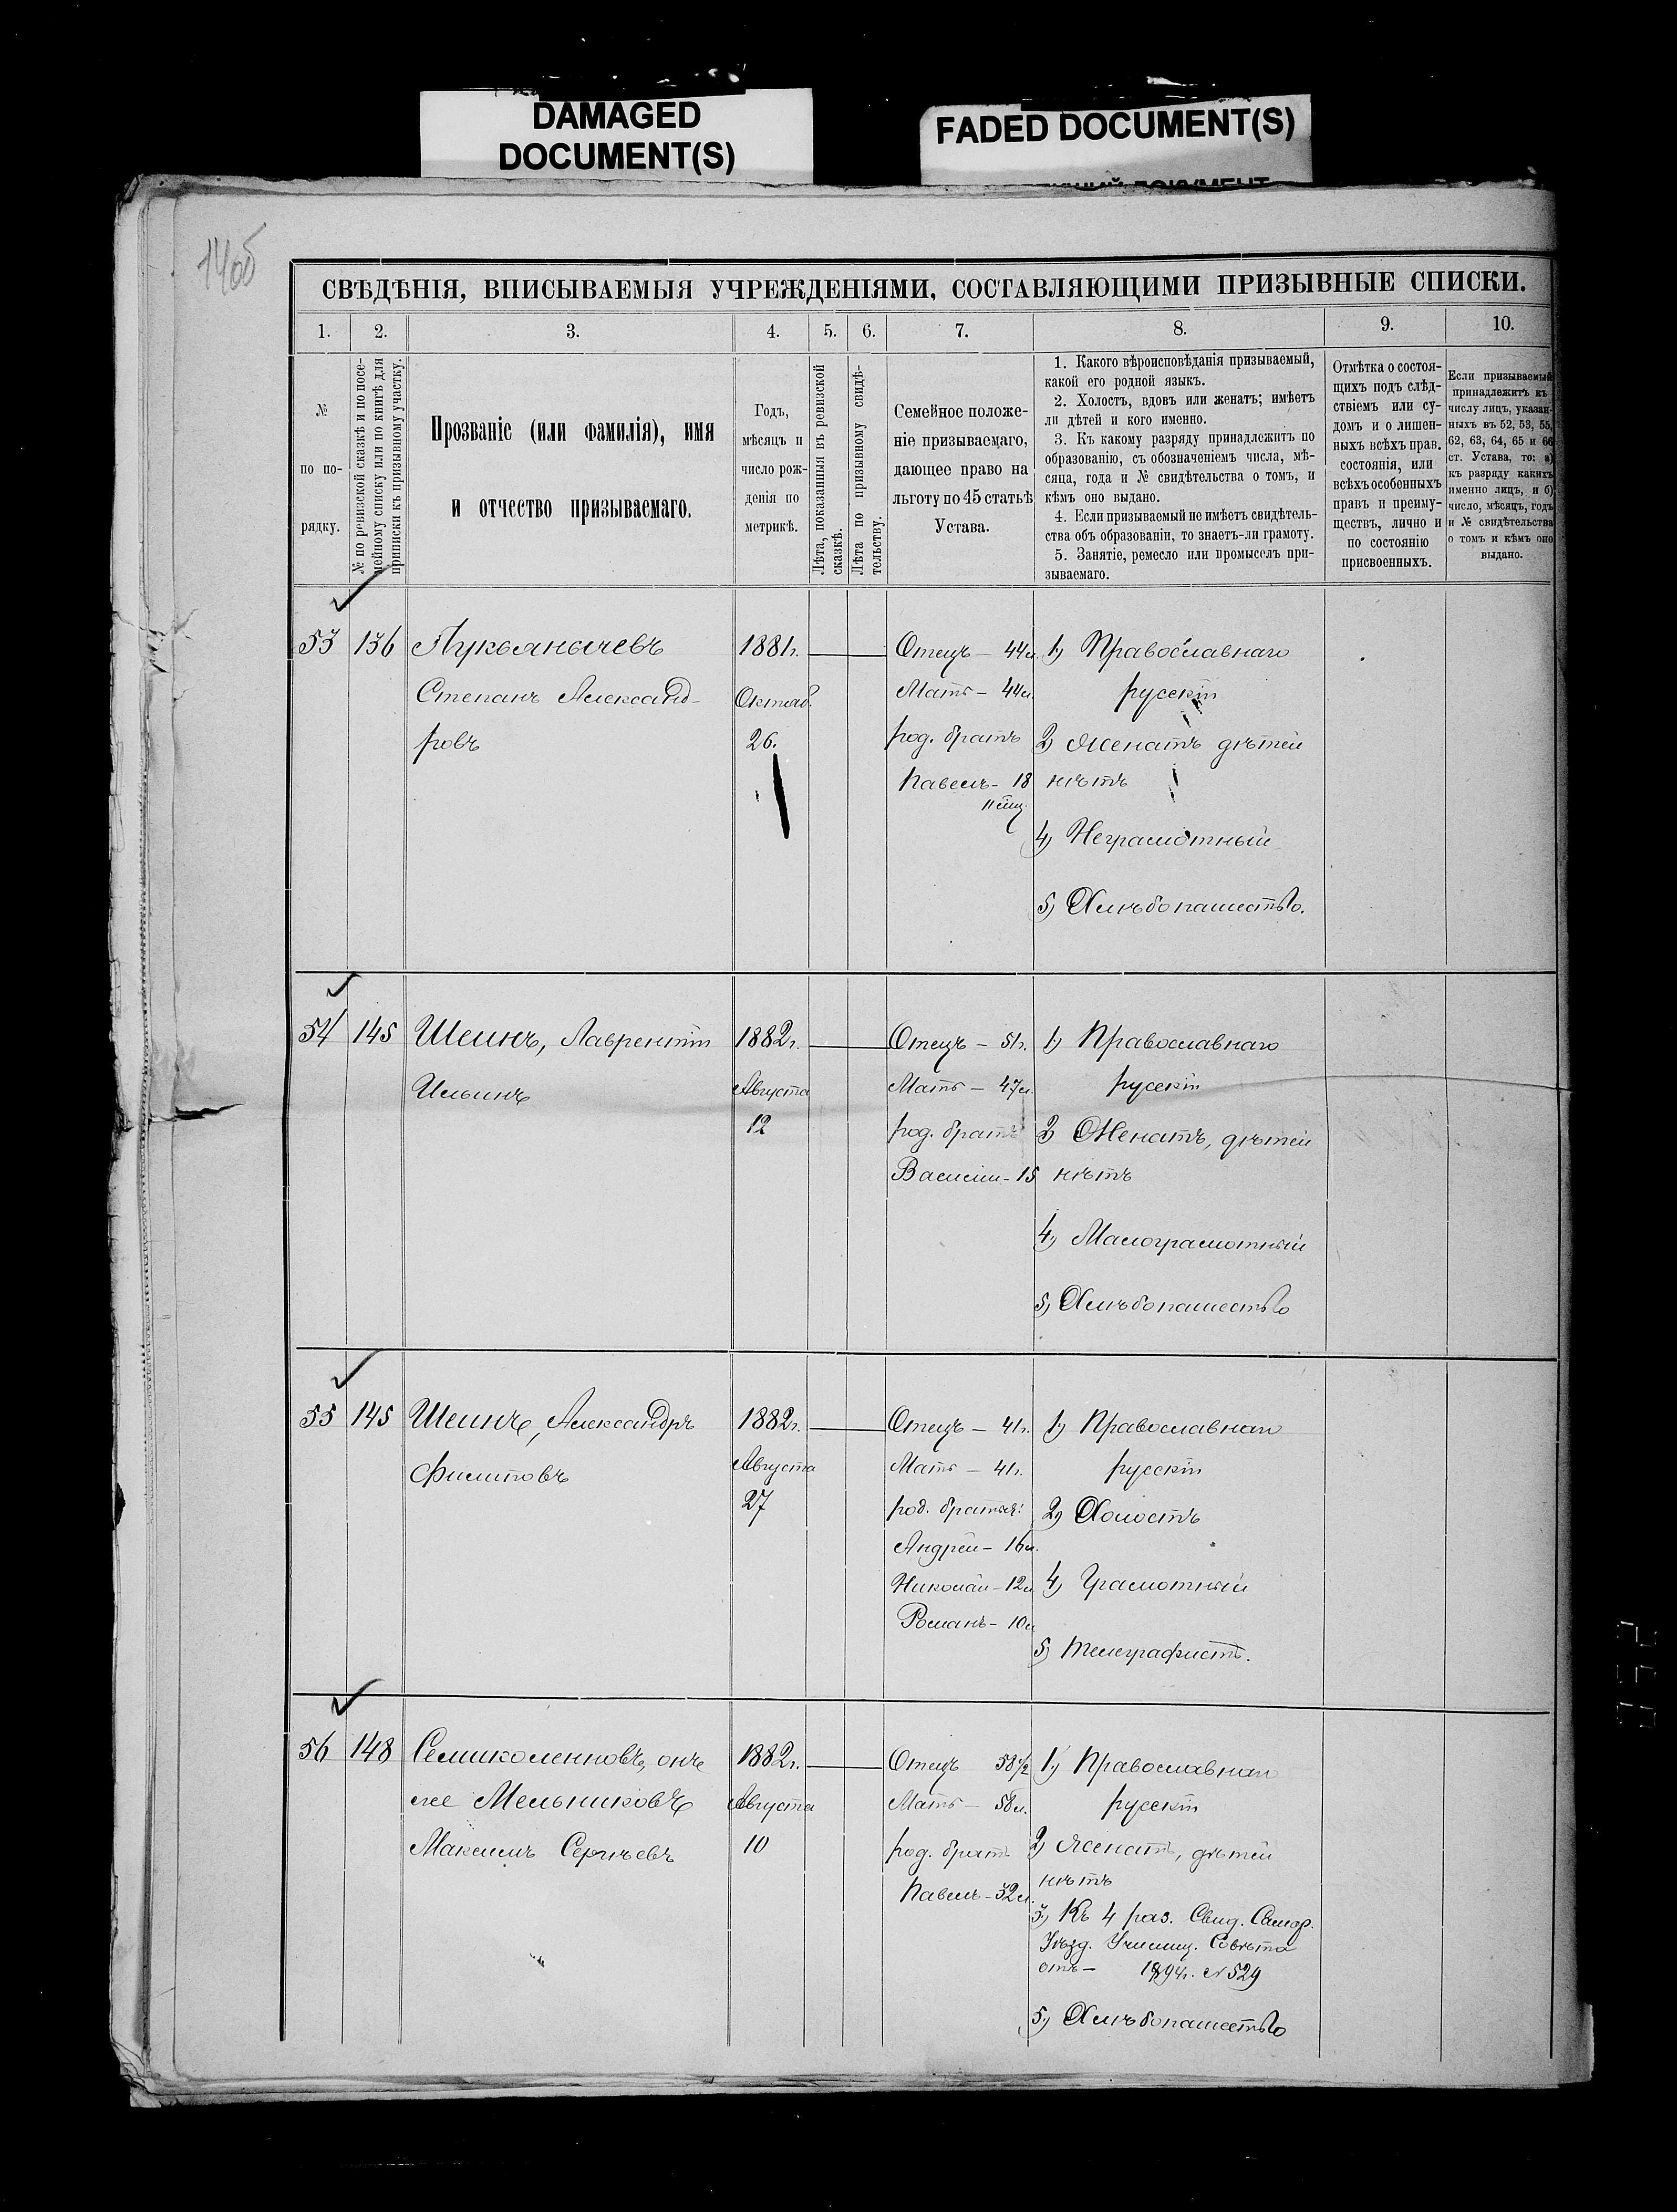 DAMAGED
DOCUMENT(S)
FADED DOCUMENT(S)
СВѢДѢНІЯ, ВПИСЫВАЕМЫЯ УЧРЕЖДЕНІЯМИ, СОСТАВЛЯЮЩИМИ ПРИЗЫВНЫЕ СПИСКИ.
1. 2. 3. 4. 5. 6. 7. 8. 9. 10.
№
по по-
рядку.
№ по ревизской сказкѣ и по посе-
мейному списку или по книгѣ для
приписки къ призывному участку.
Прозваніе (или фамилія), имя
и отчество призываемаго.
Годъ,
мѣсяцъ и
число рож-
денія по
метрикѣ.
Лѣта, показанныя въ ревизской
сказкѣ.
Лѣта по призывному свидѣ-
тельству.
Семейное положе-
ніе призываемаго,
дающее право на
льготу по 45 статьѣ
Устава.
1. Какого вѣроисповѣданія призываемый,
какой его родной языкъ.
2. Холостъ, вдовъ или женатъ; имѣетъ
ли дѣтей и кого именно.
3. Къ какому разряду принадлежитъ по
образованію, съ обозначеніемъ числа, мѣ-
сяца, года и № свидѣтельства о томъ, и
кѣмъ оно выдано.
4. Если призываемый не имѣетъ свидѣтель-
ства объ образованіи, то знаетъ-ли грамоту.
5. Занятіе, ремесло или промыселъ при-
зываемаго.
Отмѣтка о состоя-
щихъ подъ слѣд-
ствіемъ или су-
домъ и о лишен-
ныхъ всѣхъ прав.
состоянія, или
всѣхъ особенныхъ
правъ и преиму-
ществъ, лично и
по состоянію
присвоенныхъ.
Если призываемый
принадлежитъ къ
числу лицъ, указан-
ныхъ въ 52, 53, 55,
62, 63, 64, 65 и 66
ст. Устава, то: а)
къ разряду какихъ
именно лицъ, и б)
число, мѣсяцъ, годъ
и № свидѣтельства
о томъ и кѣмъ оно
выдано.
53 136
Лукьянычевъ
Степанъ Александ-
ровъ
1881г.
Октяб.
26.
Отецъ — 44л.
Мать — 44л.
род. братъ
Павелъ - 18
1) Православнаго
русскій
2) Женатъ дѣтей
нѣтъ
4) Неграмотный
5) Хлѣбопашество.
54 145
Шеинъ, Лаврентій
Ильинъ
1882г.
Августа
12
Отецъ — 51г.
Мать — 47л.
род. братъ
Василій - 15
1) Православнаго
русскій
2) Женатъ, дѣтей
нѣтъ
4) Малограмотный
5) Хлѣбопашество
55 145
Шеинъ, Александръ
Филиповъ
1882г.
Августа
27
Отецъ — 41г.
Мать — 41г.
род. братья:
Андрей - 16л.
Николай - 12л
Романъ - 10л
1) Православнаго
русскій
2) Холостъ
4) Грамотный
5) Телеграфистъ.
56 148
Семиколенновъ, онъ
же Мельниковъ
Максимъ Сергѣевъ
1882г.
Августа
10
Отецъ 58½
Мать — 58л.
род. братъ
Павелъ - 32л.
1) Православнаго
русскій
2) Женатъ, дѣтей
нѣтъ
3) Къ 4 раз. Свид. Самар.
Уѣзд. Училищ. Совѣта
отъ — 1894г. № 529
5) Хлѣбопашество